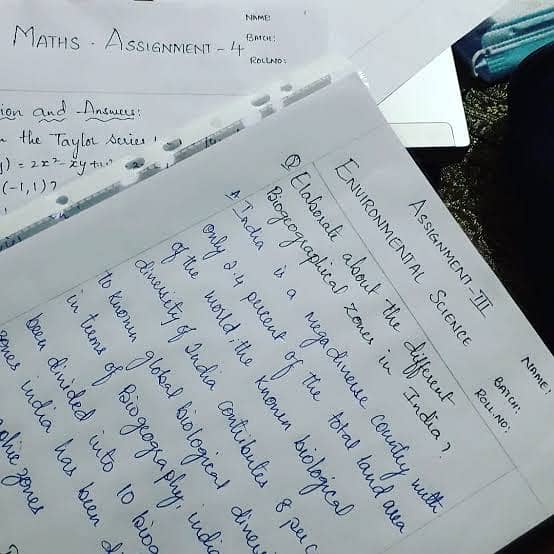 MATHS - ASSIGNMENT - 4
NAME:
BATCH:
ROLLNO:
ion and Answers:
the Taylor series
y) = 2x²-xy+
(-1,1)?
ASSIGNMENT-III
ENVIRONMENTAL SCIENCE
NAME:
BATCH:
ROLL.NO:
Q Elaborate about the different
Biogeographical zones in India?
A India is a megadiverse country with
only 2.4 percent of the total land area
of the world, the known biological
diversity of India contributes 8 perc
to known global biological diver
in terms of Biogeography, indi
been divided into 10 biog
zones india has been d
phic zones